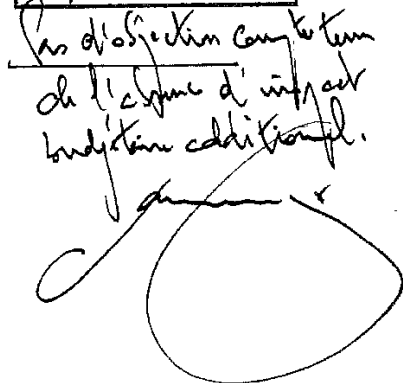 Pas d'objection compte tenu
de l'absence d'impact
budgétaire additionnel.